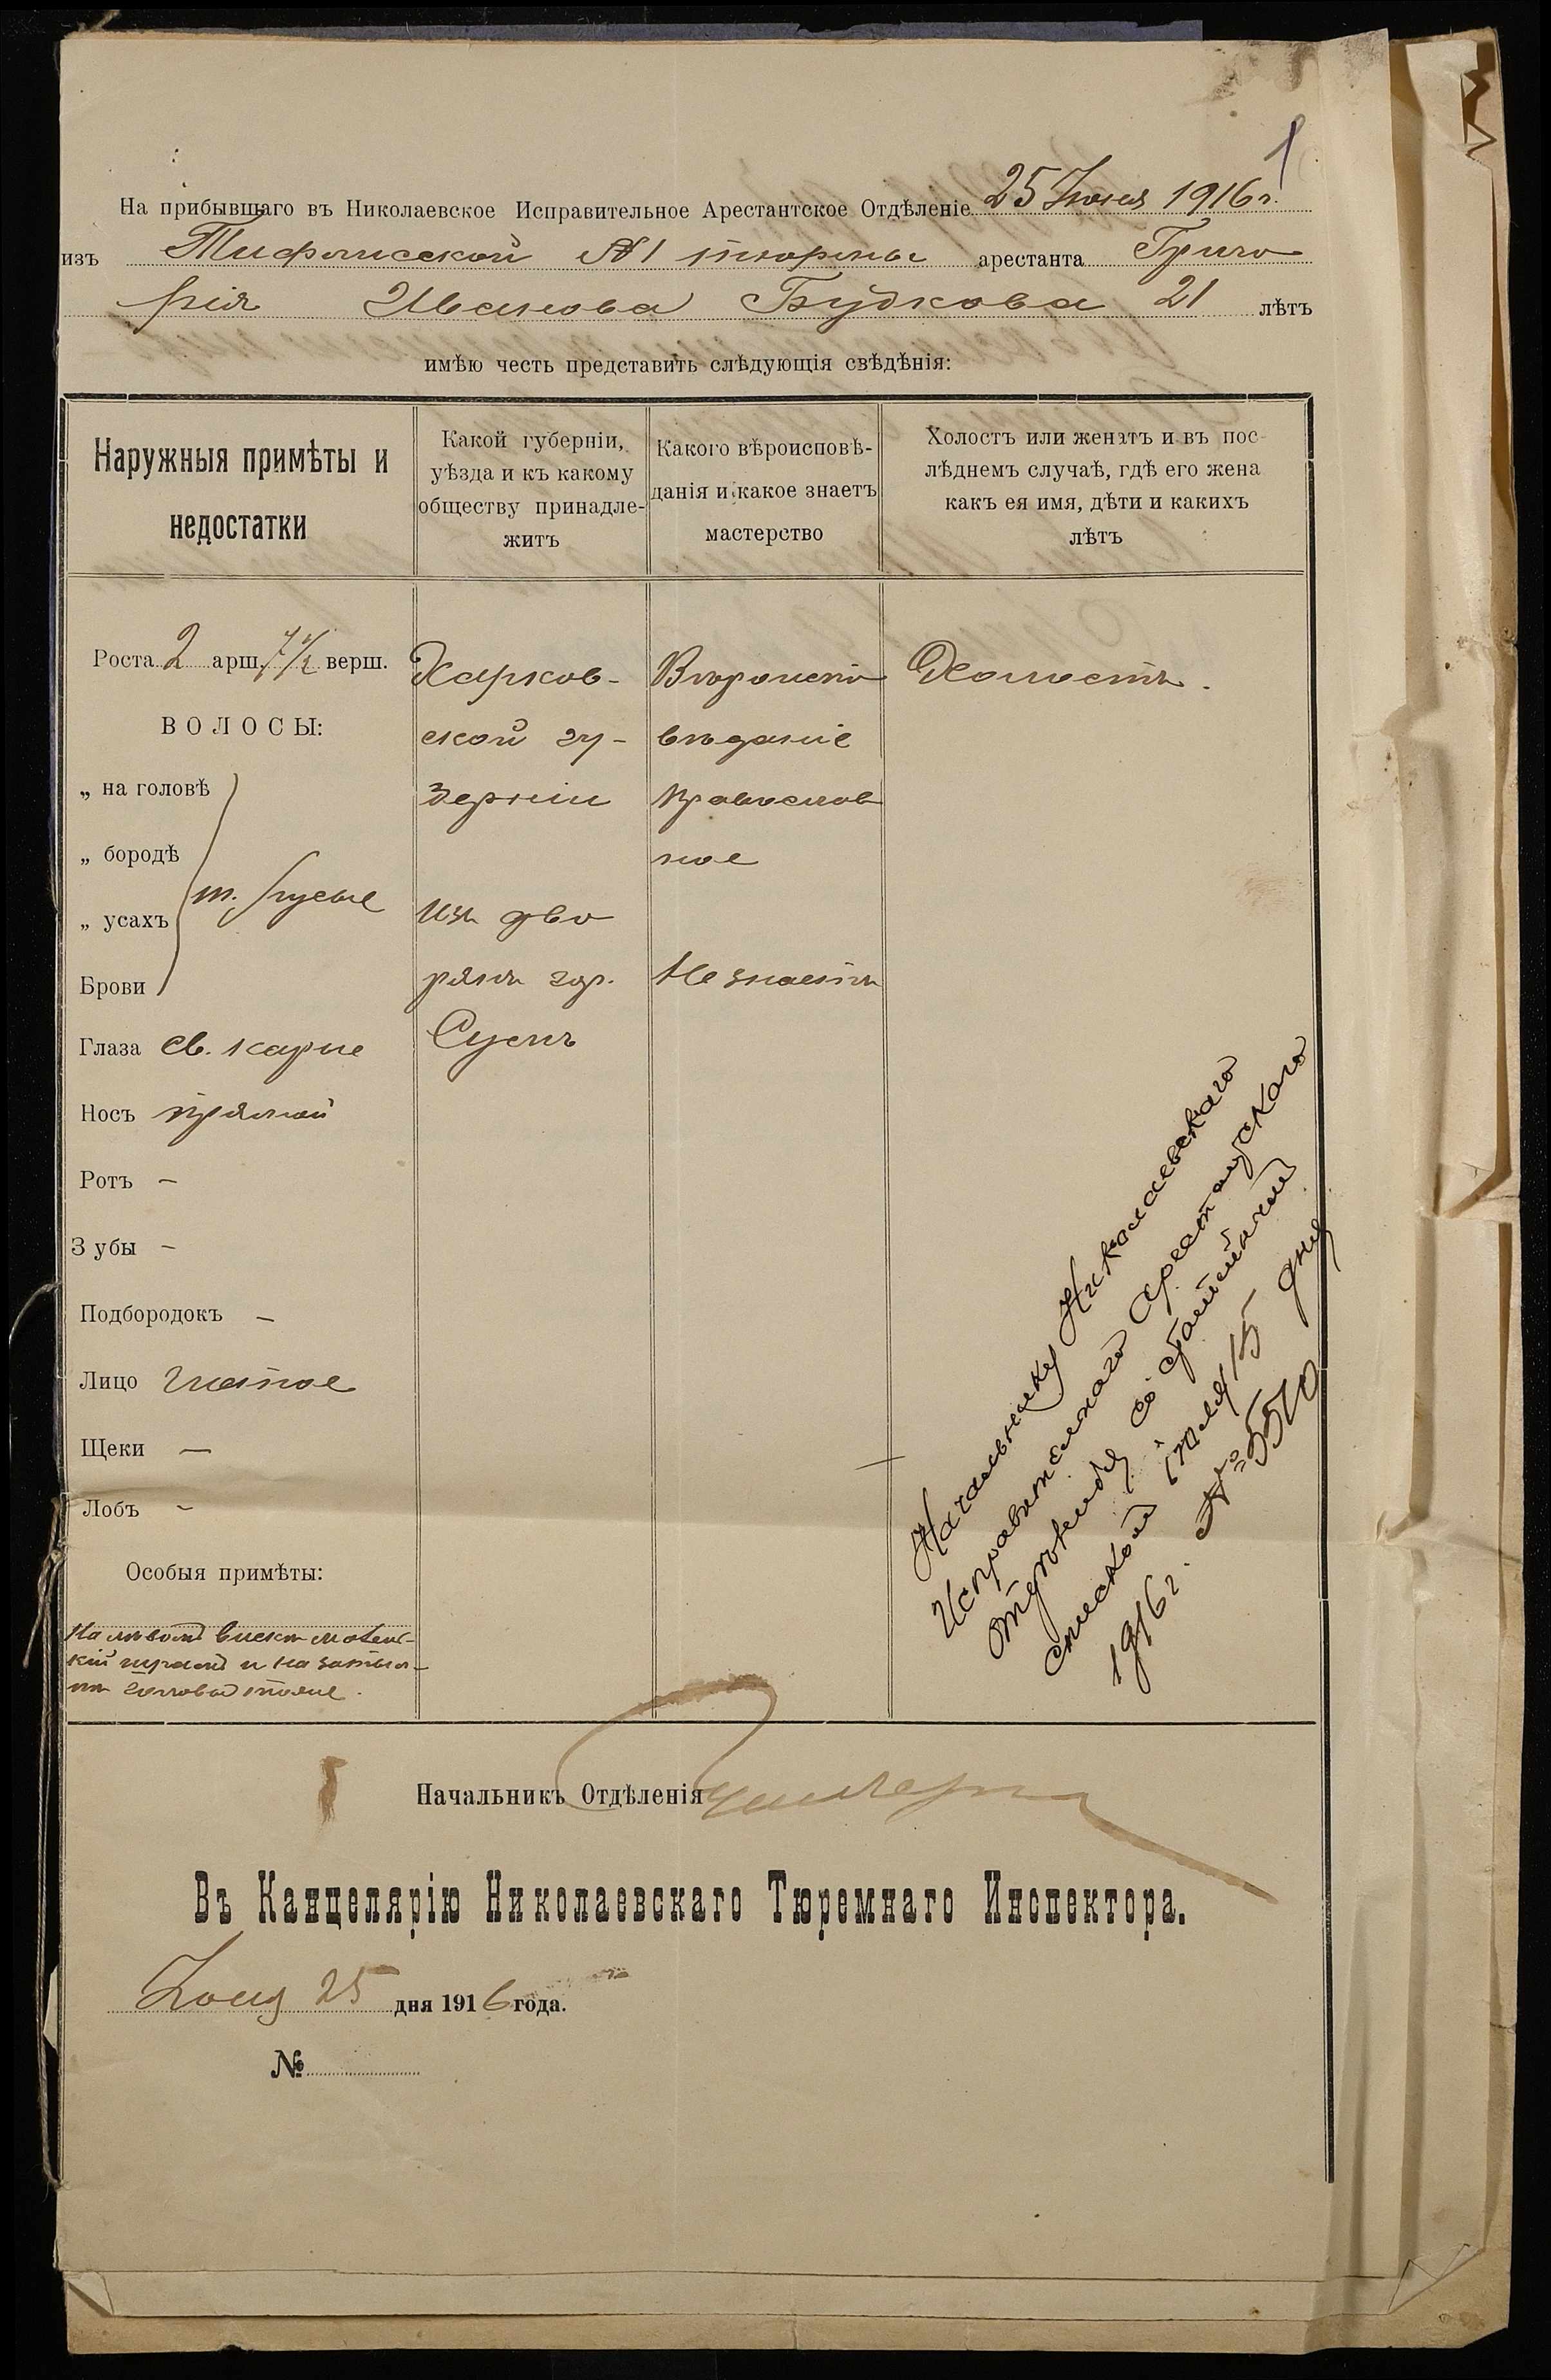 1
На прибывшаго въ Николаевское Исправительное Арестантское Отдѣленіе 25 Июня 1916 г.
изъ Тифлисской №1 тюрьмы арестанта Григо
рія Иванова Будкова 21 лѣтъ
имѣю честь представить слѣдующія свѣдѣнія:
Наружныя примѣты и
недостатки
Какой губерніи,
уѣзда и къ какому
обществу принадле-
житъ
Какого вѣроисповѣ-
данія и какое знаетъ
мастерство
Холостъ или женатъ и въ пос-
лѣднемъ случаѣ, гдѣ его жена
какъ ея имя, дѣти и какихъ
лѣтъ
Роста 2 арш. 7 1/2 верш.
ВОЛОСЫ:
„ на головѣ
„ бородѣ
„ усахъ
т. русые
Брови
Глаза св. карие
Носъ прямой
Ротъ —
Зубы —
Подбородокъ —
Лицо чистое
Щеки —
Лобъ —
Особыя примѣты:
На лѣвомъ виске малень-
кій шрамъ и на затыл-
кѣ головы тоже.
Харков-
ской гу-
берніи
Изъ дво
рянъ гор.
Сумъ
Вѣроиспо
вѣданіе
православ
ное
Не знаетъ
Холостъ.
Начальнику Николаевскаго
Исправительнаго Арестантскаго
Отдѣленія со статейнымъ
спискомъ 15 дня
1916 г. № 5510
Начальникъ Отдѣленія
Въ Канцелярію Николаевскаго Тюремнаго Инспектора.
Июня 25 дня 1916 года.
№